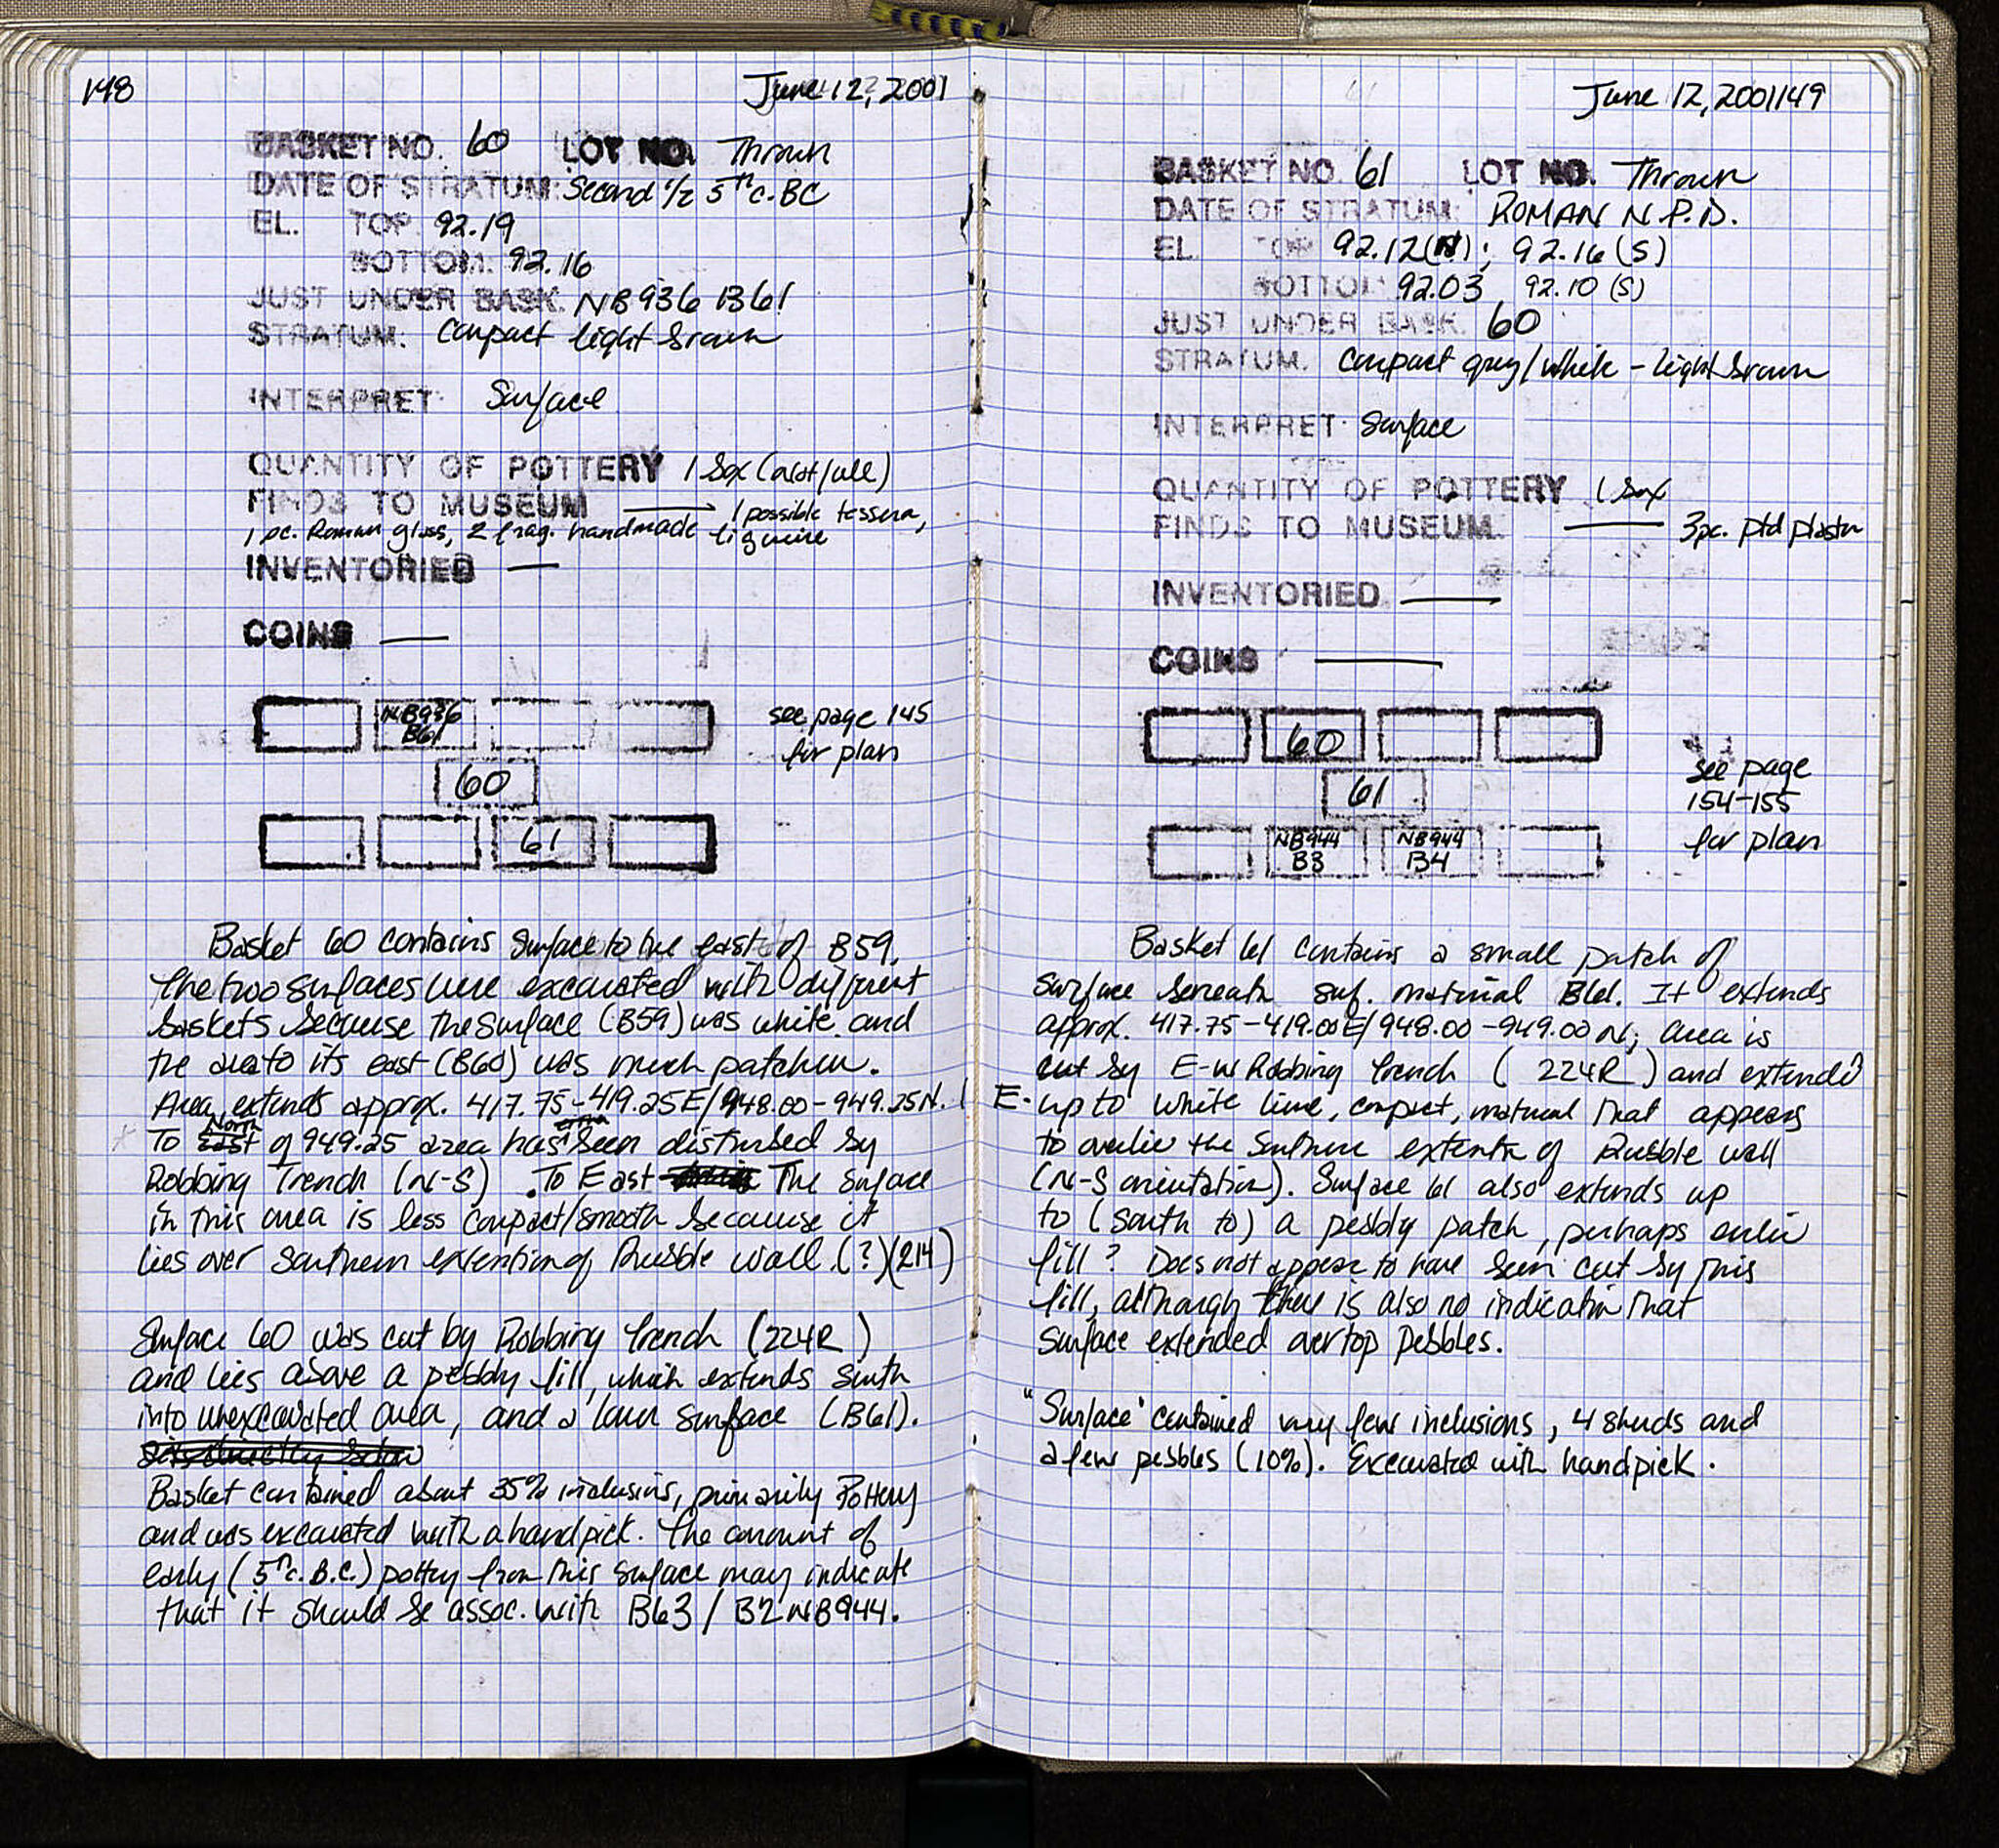 148
June 12, 2001
BASKET NO. 60 LOT NO. Thrown
DATE OF STRATUM: Second 1/2 5th c. BC
EL. TOP 92.19
BOTTOM: 92.16
JUST UNDER BASK. NB936 B61
STRATUM: Compact light brown
INTERPRET: Surface
QUANTITY OF POTTERY 1 box
FINDS TO MUSEUM — 1 possible tessera,
1 pc. Roman glass, 2 frag. handmade figurine
INVENTORIED —
COINS —
NB936
B61
60
61
see page 145
for plan
Basket 60 contains surface to the east of B59.
The two surfaces were excavated with different
baskets because the surface (B59) was white and
the area to its east (B60) was much patchier.
Area extends approx. 417.75-419.25E/948.00-949.25N.
To East North of 949.25 area has been disturbed by
Robbing Trench (N-S). To East The surface
in this area is less compact/smooth because it
lies over southern extention of Rubble Wall (?)(214)
Surface 60 was cut by Robbing Trench (224R)
and lies above a pebbly fill, which extends South
into unexcavated area, and a lower surface (B61).
Basket contained about 35% inclusions, primarily Pottery
and was excavated with a handpick. The amount of
early (5th c. B.C.) pottery from this surface may indicate
that it should be assoc. with B63/B2 NB944.
June 12, 2001 149
BASKET NO. 61 LOT NO. Thrown
DATE OF STRATUM: ROMAN N.P.D.
EL. TOP 92.12 (N); 92.16 (S)
BOTTOM 92.03 92.10 (S)
JUST UNDER BASK. 60
STRATUM. Compact grey/white - light brown
INTERPRET. Surface
QUANTITY OF POTTERY 1 box
FINDS TO MUSEUM. — 3 pc. ptd plaster
INVENTORIED —
COINS —
60
61
NB944
B3
NB944
B4
see page
154-155
for plan
Basket 61 contains a small patch of
surface beneath surf. material B61. It extends
approx. 417.75-419.00E/948.00-949.00N; area is
cut by E-W Robbing Trench (224R) and extends
E. up to white lime, compact, material that appears
to overlie the southern extent of Rubble wall
(N-S orientation). Surface 61 also extends up
to (south to) a pebbly patch, perhaps earlier
fill? Does not appear to have been cut by this
fill, although there is also no indication that
surface extended overtop pebbles.
"Surface" contained very few inclusions, 4 sherds and
a few pebbles (10%). Excavated with handpick.